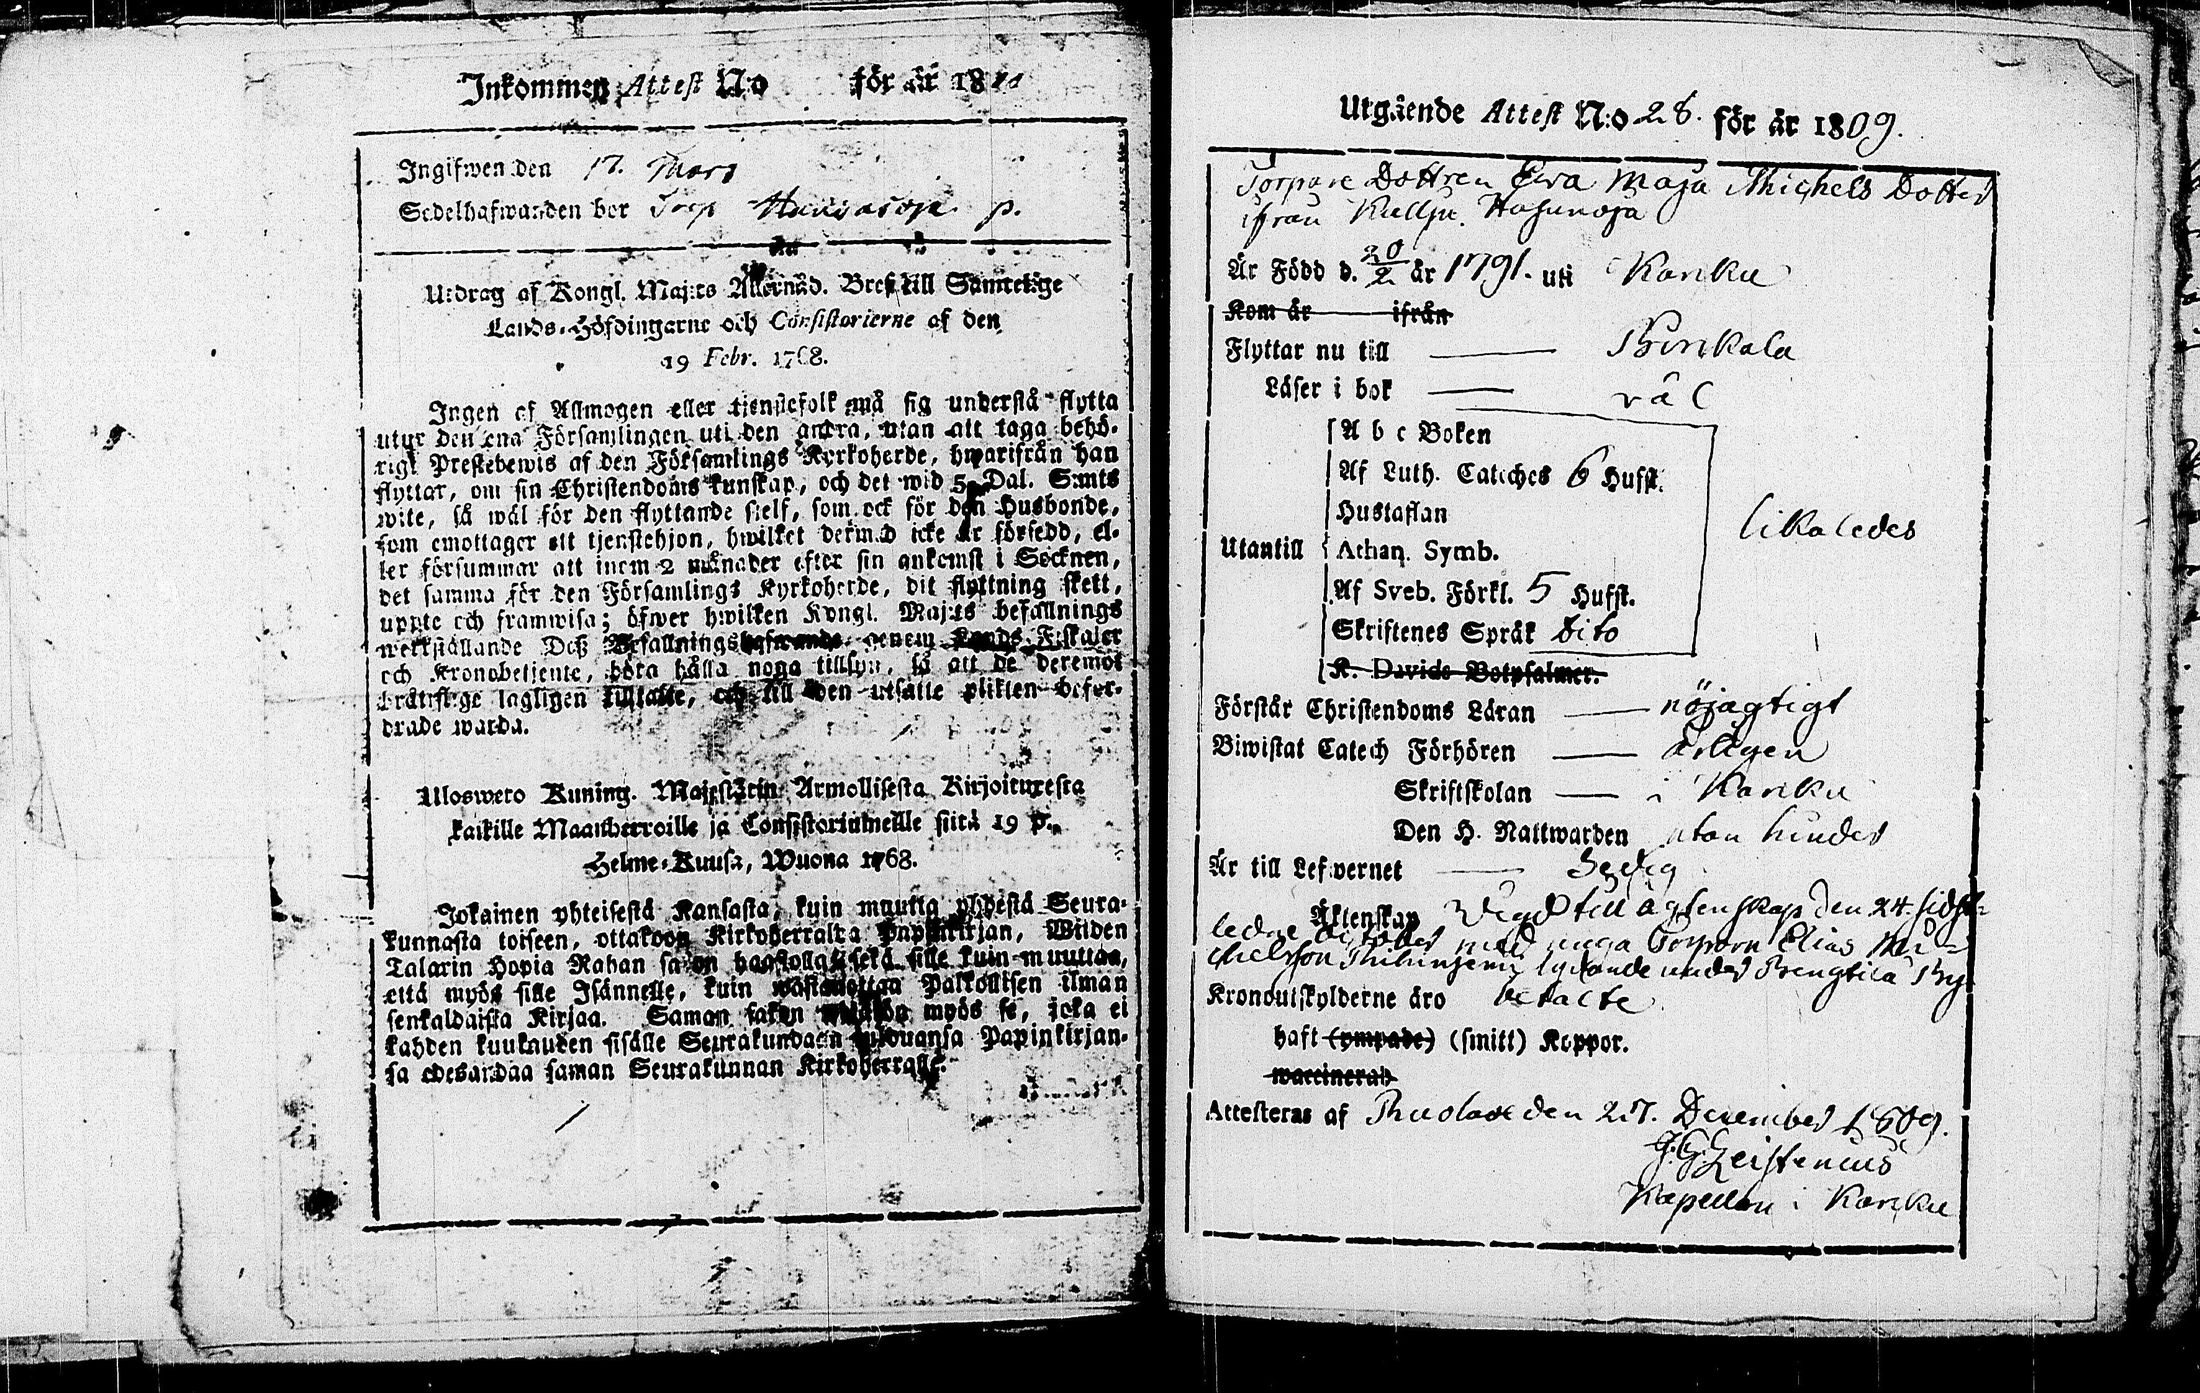 Inkommen Attest N:o för år 1810
Ingifwen den 17. Mars
Sedelhafwanden bor Torp p.
Utdrag af Kongl. Maj:ts Allernåd. Bref till Samtelige
Lands-Höfdingarne och Consistorierne af den
19 Febr. 1768.
Ingen af Allmogen eller tjenstefolk må sig understå flytta
utur den ena Församlingen uti den andra, utan att taga behö-
rigt Prestebewis af den Församlings Kyrkoherde, hwarifrån han
flyttar, om sin Christendoms kunskap, och det wid 5 Dal. S:mts
wite, så wäl för den flyttande sjelf, som ock för den Husbonde,
som emottager ett tjenstehjon, hwilket dermed icke är försedd, el-
ler försummar att inom 2 månader efter sin ankomst i Socknen,
det samma för den Församlings Kyrkoherde, dit flyttning skett,
uppte och framwisa; öfwer hwilken Kongl. Maj:ts befallnings
werkställande Deß Befallningshafwande genom Lands-Fiskaler
och Kronobetjente, böra hålla noga tillsyn, så att de deremot
bråttslige lagligen tilltalte, och till den utsatte plikten befor-
drade warda.
Uloswero Kuning. Majestätin Armollisesta Kirjoituxesta
kaikille Maanherroille ja Consistoriumeille siitä 19 p.
Helme-Kuusa, Wuona 1768.
Jokainen yhteisestä Kansasta, kuin muutta yhdestä Seura-
kunnasta toiseen, ottakoon Kirkoherralta Papinkirjan, Wiiden
Talarin Hopia Rahan sakon haastolla sekä sille kuin muuttaa,
että myös sille Isännelle, kuin wastaanottaa Palkollisen ilman
senkaldaista Kirjaa. Saman sakon myös se, joka ei
kahden kuukauden sisälle Seurakundaan tulduansa Papinkirjan-
sa edesandaa saman Seurakunnan Kirkoherralle.
Utgående Attest N:o 28. för år 1809.
Torpare Dottren Ewa Maja Michels Dotter
ifrån
Är Född d. 20/2 år 1791. uti Karcku
Kom år ifrån
Flyttar nu till Birkala
Läser i bok väl
A b c Boken
Af Luth. Cateches 6 Hufst.
Hustaflan
Utantill Athan. Symb. likaledes
Af Sveb. Förkl. 5 Hufst.
Skriftenes Språk dito
K. Davids Botpsalmer.
Förstår Christendoms Läran nöjagtigt
Biwistat Catech Förhören årligen
Skriftskolan i Karcku
Den H. Nattwarden utan hinder
Är till Lefwernet Sedig
Äktenskap Vigd till ägtenskap den 24. sidst-
ledne October med unga Torparn Elias Mi-
chelsson lydande under By
Kronoutskylderne äro betalte
haft (ympade) (smitt) Koppor.
waccinerad
Attesteras af den 27. December 1809.
J. G. Zeistenius
Kapellan i Karcku